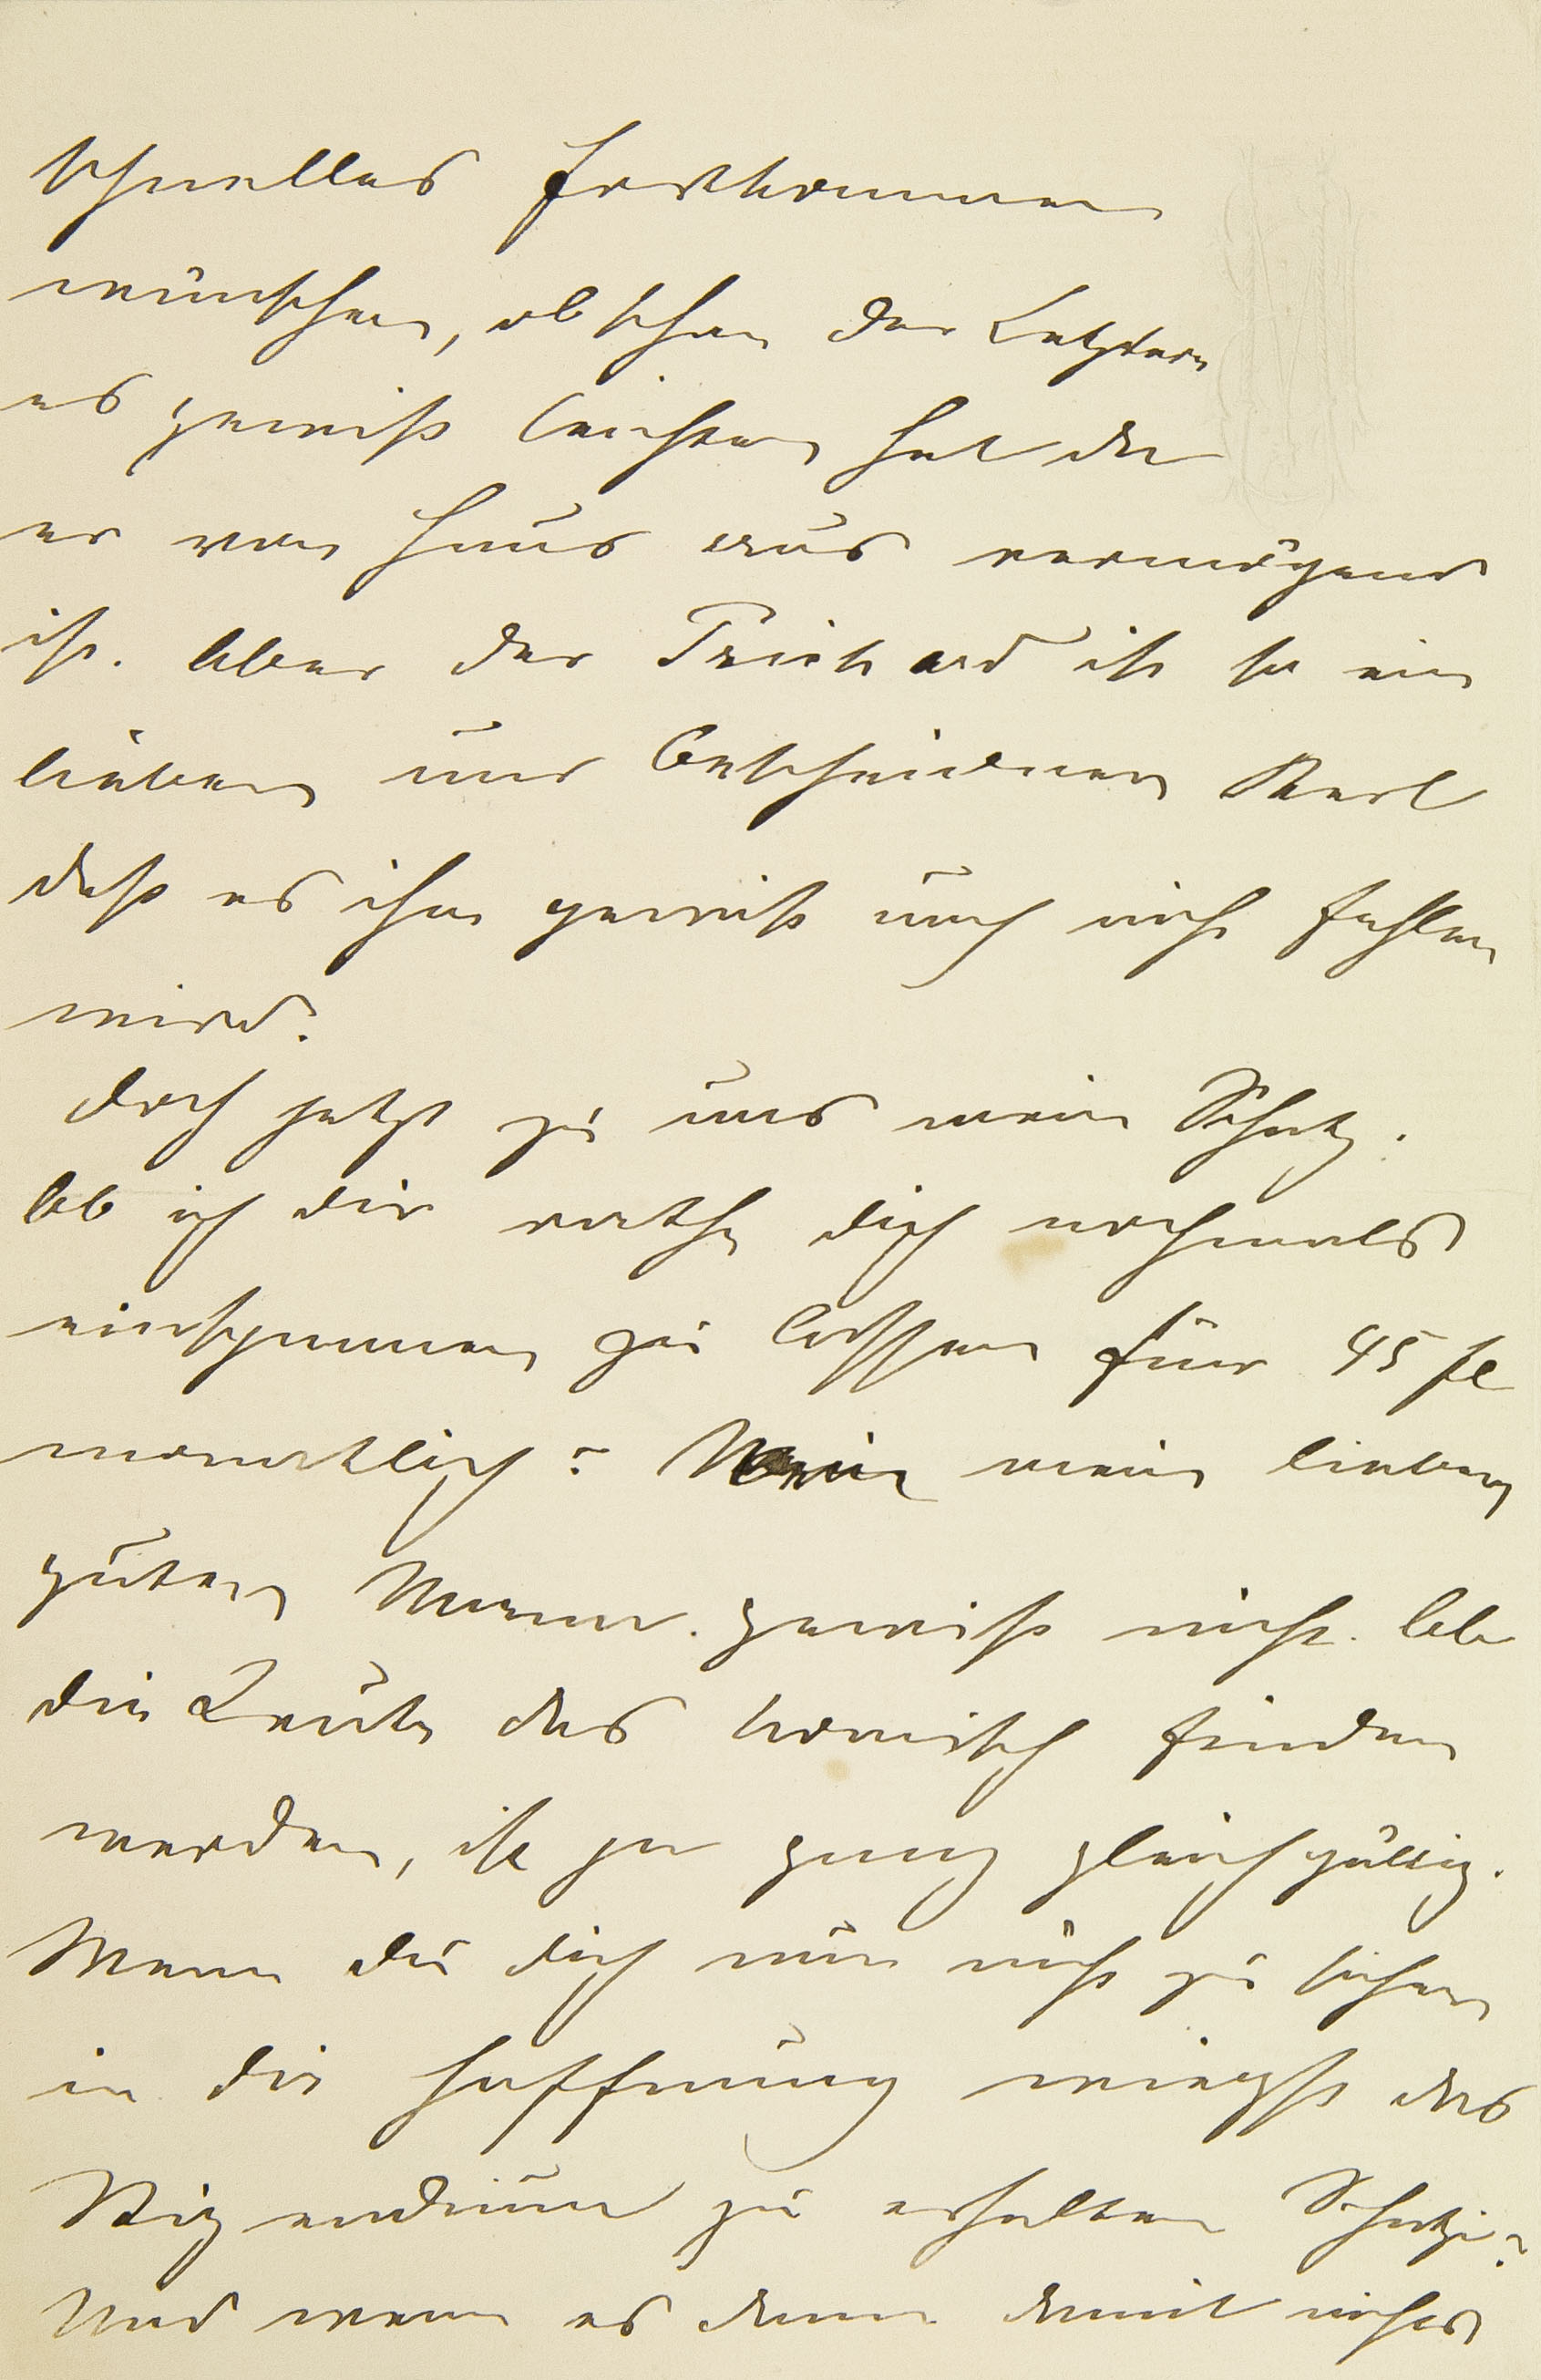 schnelles Fortkommen
wünschen, obschon der Letztere
es gewiß leichter hat da
er von Haus aus vermögend
ist. Aber der ist so ein
lieber und bescheidener Kerl
daß es ihm gewiß auch nicht fehlen
wird.
Doch jetzt zu uns mein Schatz.
Ob ich dir rathe dich nochmals
einspannen zu lassen für 45 fl
monatlich? Nein mein lieber
guter Mann. gewiß nicht. Ob
die Leute das komisch finden
werden, ist ja ganz gleichgültig.
Wenn du dich nun nicht zu sicher
in die Hoffnung wiegst das
Stipendium zu erhalten Schatzi?
Und wenn es dann damit nichts